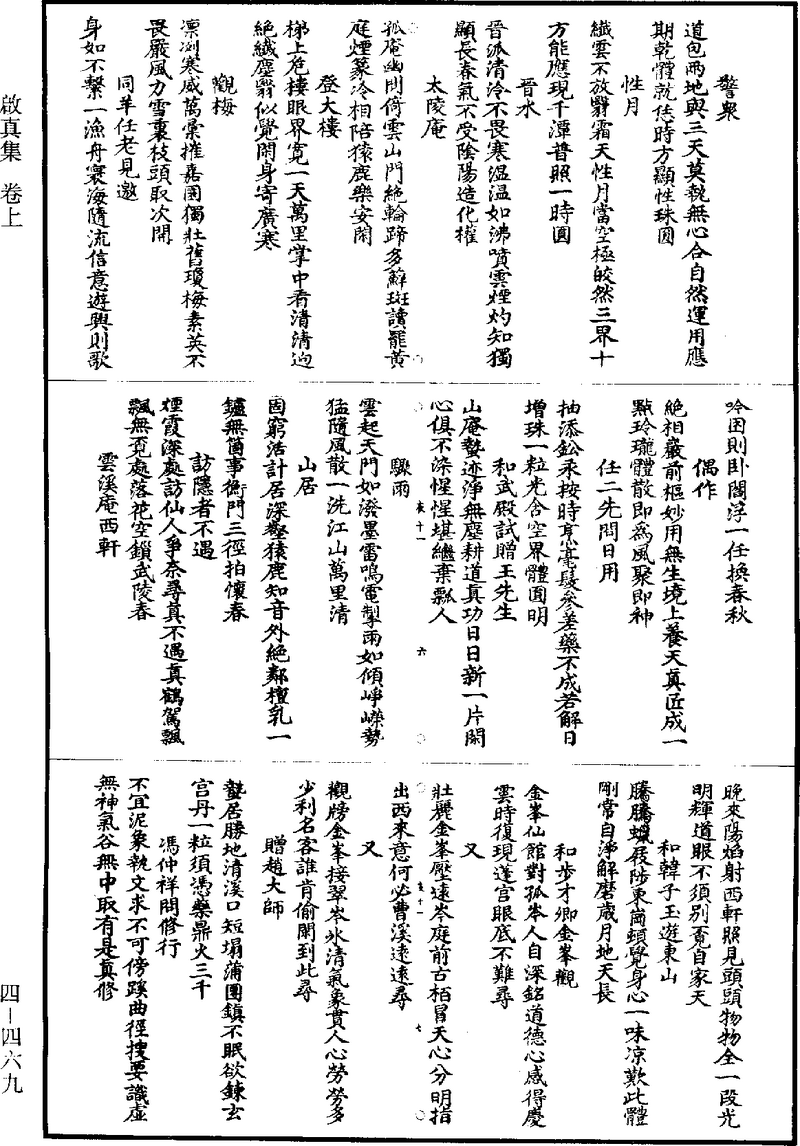 警眾
道包兩地與三天莫執無心合自然運用應
期乾體就恁時方顯性珠圓
性月
纖雲不放翳霜天性月當空極皎然三界十
方能應現千潭普照一時圓
晉水
晉派清泠不畏寒溫溫如沸噴雲煙灼知獨
顯長春氣不受陰陽造化權
太陵庵
孤庵幽閉倚雲山門絕輪蹄多蘚斑讀罷黃
庭煙篆冷相陪猿鹿樂安閑
登大樓
梯上危樓眼界寬一天萬里掌中看清清迥
絕纖塵翳似覺閑身寄廣寒
觀梅
凜冽寒威萬彙摧嘉園獨壯舊瓊梅素英不
畏嚴風力雪裹枝頭取次開
同羊任老見邀
身如不繫一漁舟寰海隨流信意遊興則歌
吟困則臥閻浮一任換春秋
偶作
絕相巖前樞妙用無生境上養天真匠成一
點玲瓏體散即為風聚即神
任二先問日用
抽添鉛汞按時烹毫髮參差藥不成若解日
增珠一粒光含空界體圓明
和武殿試贈王先生
山庵蟄迹淨無塵耕道真功日日新一片閑
心俱不染惺惺堪繼棄瓢人
亥十一
六
驟雨
雲起天門如潑墨雷鳴電掣雨如傾崢嶸勢
猛隨風散一洗江山萬里清
山居
固窮活計居深壑猿鹿知音外絕鄰檀乳一
鑪無箇事衡門三徑拍懷春
訪隱者不遇
煙霞深處訪仙人爭奈尋真不遇真鶴駕飄
飄無覓處落花空鎖武陵春
雲溪庵西軒
晚來陽焰射西軒照見頭頭物物全一段光
明輝道眼不須別覓自家天
和韓子玉遊東山
騰騰蠟屐陟東崗頓覺身心一味涼歎此體
剛常自淨解磨歲月地天長
和步才卿金峯觀
金峯仙館對孤岑人自深銘道德心感得慶
雲時復現蓬宮眼底不難尋
又
壯麗金峯壓遠岑庭前古栢冒天心分明指
出西來意何必曹溪遠遠尋
亥十一
七
又
觀牓金峯接翠岑冰清氣象貫人心勞勞多
少利名客誰肯偷閑到此尋
贈趙大師
蟄居勝地清溪口短塌蒲團鎮不眠欲鍊玄
宮丹一粒須憑藥鼎火三千
馮仲祥問修行
不宜泥象執文求不可傍蹊曲徑搜要識虛
無神氣谷無中取有是真修
啟真集 卷上
四-四六九